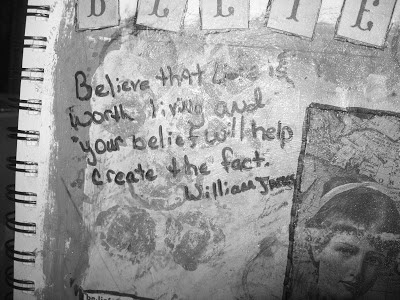 BELIEF
Believe that Life is
worth living and
your belief will help
create the fact.
William James